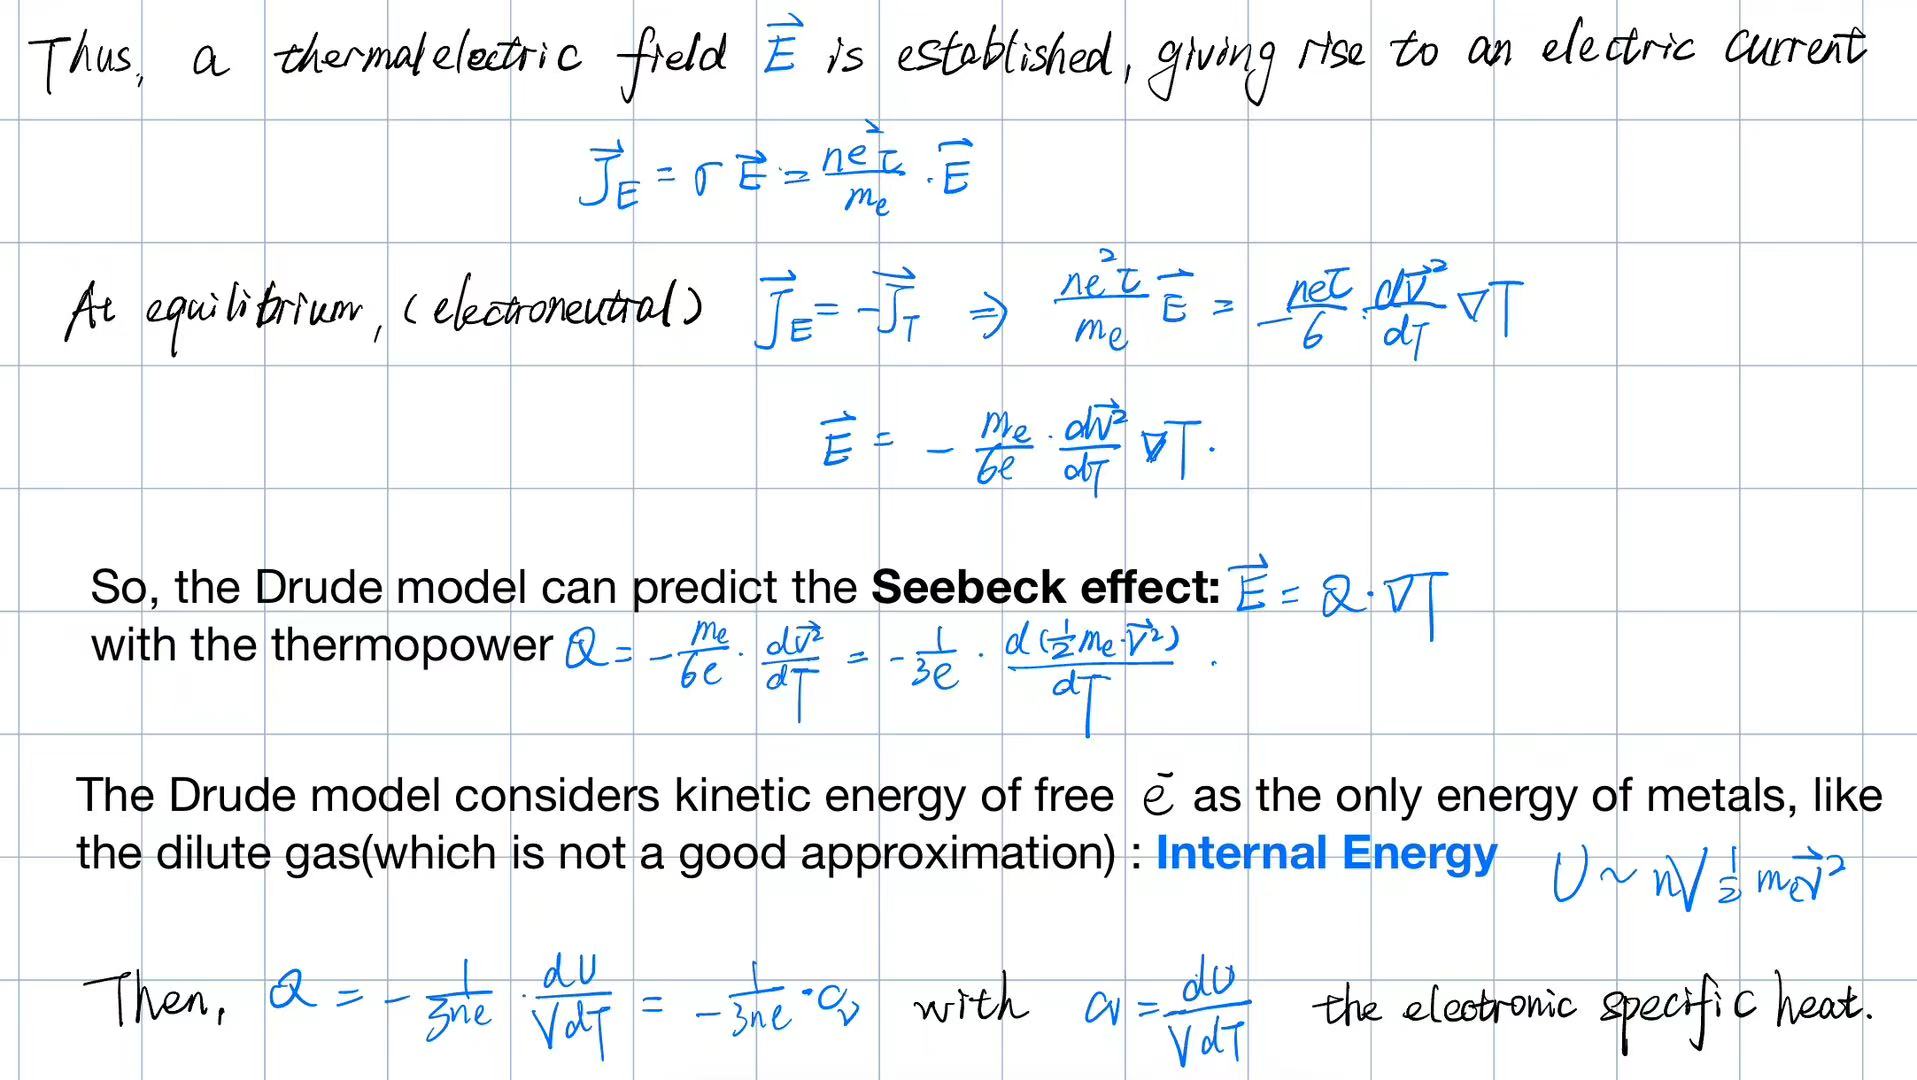 Thus, a thermalelectric field E⃗ is established, giving rise to an electric current
J⃗_E = σ E⃗ = ne²τ/m_e · E⃗
At equilibrium, (electroneutral) J⃗_E = -J⃗_T ⇒ ne²τ/m_e E⃗ = -neτ/6 · dv⃗²/dT ∇T
E⃗ = - m_e/6e · dv⃗²/dT ∇T.
So, the Drude model can predict the Seebeck effect: E⃗ = Q·∇T
with the thermopower Q = - m_e/6e · dv⃗²/dT = - 1/3e · d(½m_e·v⃗²)/dT .
The Drude model considers kinetic energy of free e⁻ as the only energy of metals, like
the dilute gas(which is not a good approximation) : Internal Energy U ~ nV ½ m_e v⃗²
Then, Q = - 1/3ne · dU/VdT = - 1/3ne · c_v with c_v = dU/VdT the electronic specific heat.